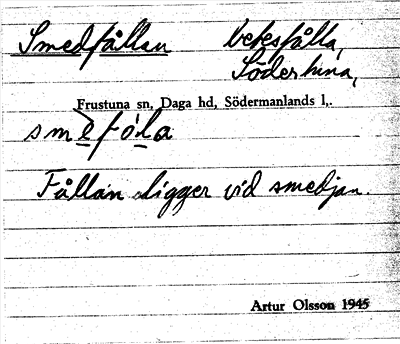 Smedfållan betesfålla,
Södertuna,
Frustuna sn, Daga hd, Södermanlands l,.
smefóla
Fållan ligger vid smedjan.
Artur Olsson 1945